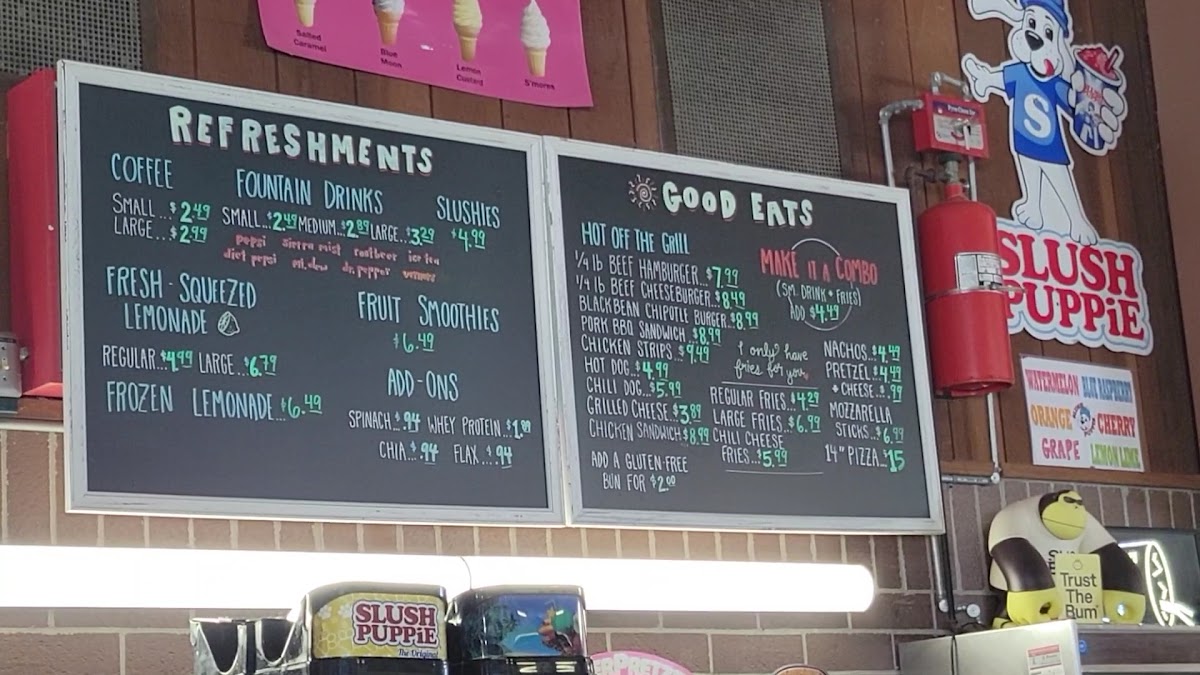 Salted
Caramel
Blue
Moon
Lemon
Custard
S'mores
REFRESHMENTS
COFFEE
SMALL...$2.49
LARGE...$2.99
FOUNTAIN DRINKS
SMALL...$2.49 MEDIUM...$2.89 LARGE...$3.29
pepsi sierra mist rootbeer ice tea
diet pepsi mt.dew dr.pepper vernors
SLUSHIES
$4.99
FRESH-SQUEEZED
LEMONADE
REGULAR.$4.99 LARGE...$6.79
FROZEN LEMONADE...$6.49
FRUIT SMOOTHIES
$6.49
ADD-ONS
SPINACH...$.94 WHEY PROTEIN...$1.89
CHIA...$.94 FLAX...$.94
GOOD EATS
HOT OFF THE GRILL
1/4 lb BEEF HAMBURGER...$7.99
1/4 lb BEEF CHEESEBURGER...$8.49
BLACKBEAN CHIPOTLE BURGER...$8.99
PORK BBQ SANDWICH...$8.99
CHICKEN STRIPS...$9.49
HOT DOG...$4.99
CHILI DOG...$5.99
GRILLED CHEESE.$3.89
CHICKEN SANDWICH.$8.99
ADD A GLUTEN-FREE
BUN FOR $2.00
MAKE IT A COMBO
(SM. DRINK + FRIES)
ADD $4.49
I only have
fries for you.
REGULAR FRIES...$4.29
LARGE FRIES...$6.99
CHILI CHEESE
FRIES...$5.99
NACHOS..$4.49
PRETZEL..$4.49
+ CHEESE...$.99
MOZZARELLA
STICKS..$6.99
14" PIZZA...$15
S
SLUSH
PUPPiE
WATERMELON BLUE RASPBERRY
ORANGE CHERRY
GRAPE LEMON LIME
Trust
The
Bum
SLUSH
PUPPiE
The Original